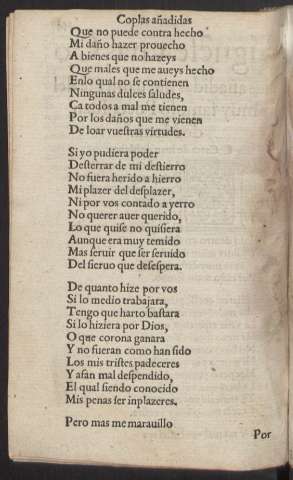 Coplas añadidas
Que no puede contra hecho
Mi daño hazer prouecho
A bienes que no hazeys
Que males que me aueys hecho
Enlo qual no se contienen
Ningunas dulces saludes,
Ca todos a mal me tienen
Por los daños que me vienen
De loar vuestras virtudes.
Si yo pudiera poder
Desterrar de mi destierro
No fuera herido a hierro
Mi plazer del desplazer,
Ni por vos contado a yerro
No querer auer querido,
Lo que quise no quisiera
Aunque era muy temido
Mas seruir que ser seruido
Del sieruo que desespera.
De quanto hize por vos
Si lo medio trabajara,
Tengo que harto bastara
Si lo hiziera por Dios,
O que corona ganara
Y no fueran como han sido
Los mis tristes padeceres
Y afan mal despendido,
El qual siendo conocido
Mis penas ser inplazeres.
Pero mas me marauillo
Por